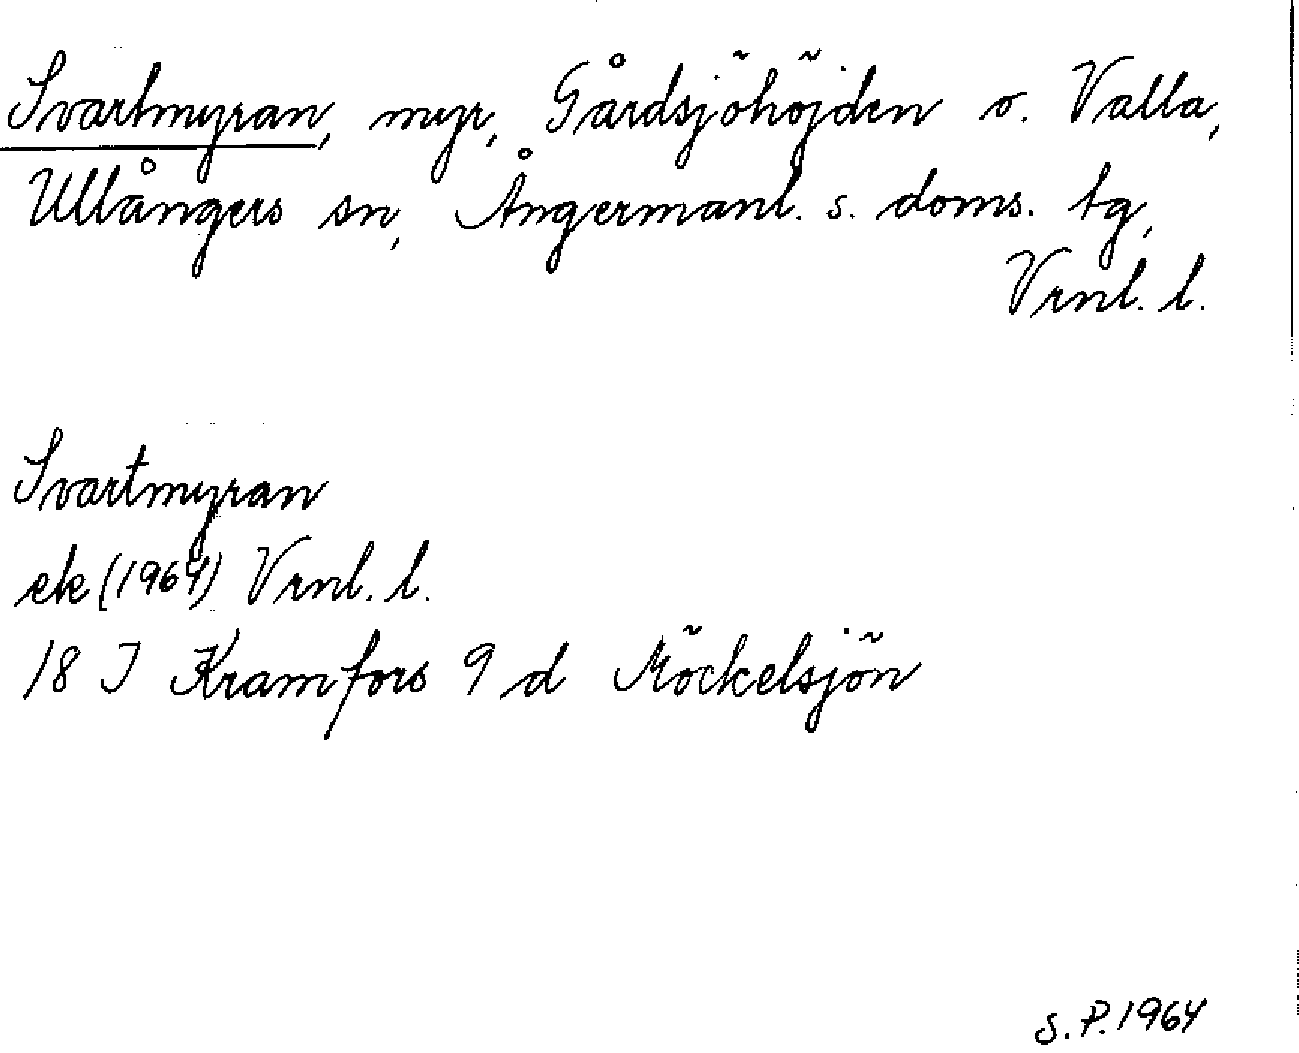 Svartmyran, myr, Gårdsjöhöjden o. Valla,
Ullångers sn, Ångermanl. s. doms. tg,
Vrnl. l.
Svartmyran
ek (1964) Vrnl. l.
18 I Kramfors 9 d Möckelsjön
S. P. 1964